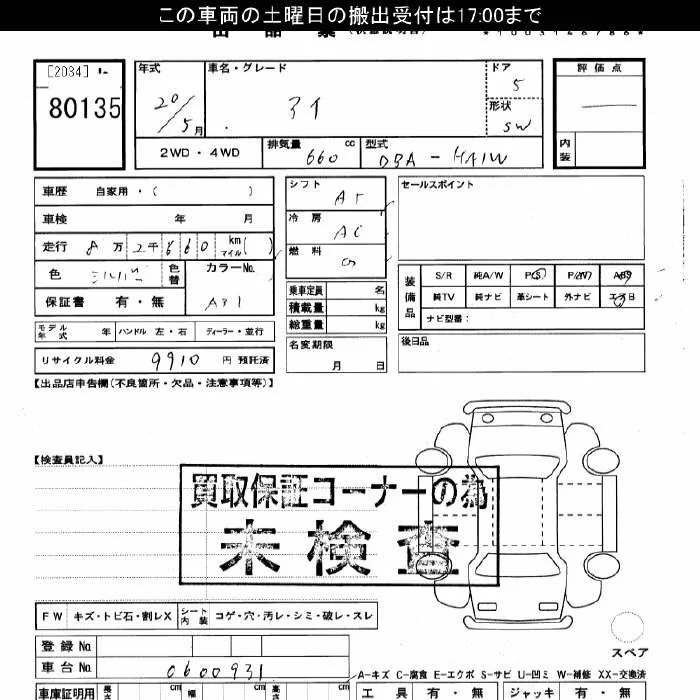 この車両の土曜日の搬出受付は17:00まで
[2034]
80135
年式
20/5月
車名・グレード
アイ
ドア
5
形状
SW
評価点
内装
2WD・4WD
排気量 660 cc
型式 DBA - HA1W
車歴 自家用・( )
車検 年 月
走行 8万2千660 km マイル( )
色 シルバー 色替 カラーNo.
A31
保証書 有・無
モデル年式 年 ハンドル 左・右 ディーラー・並行
リサイクル料金 9910 円 預託済
シフト AT
冷房 AC
燃料
乗車定員 名
積載量 kg
総重量 kg
名変期限
月 日
セールスポイント
装備品
S/R 純A/W P/S P/W ABS
純TV 純ナビ 革シート 外ナビ エアB
ナビ型番:
後日品
【出品店申告欄(不良箇所・欠品・注意事項等)】
【検査員記入】
買取保証コーナーの為
未検査
FW キズ・トビ石・割レX シート内装 コゲ・穴・汚レ・シミ・破レ・スレ
登録No.
車台No. 0600931
スペア
A-キズ C-腐食 E-エクボ S-サビ U-凹ミ W-補修 XX-交換済
車庫証明用 長さ cm 幅 cm 高さ cm
工具 有・無 ジャッキ 有・無